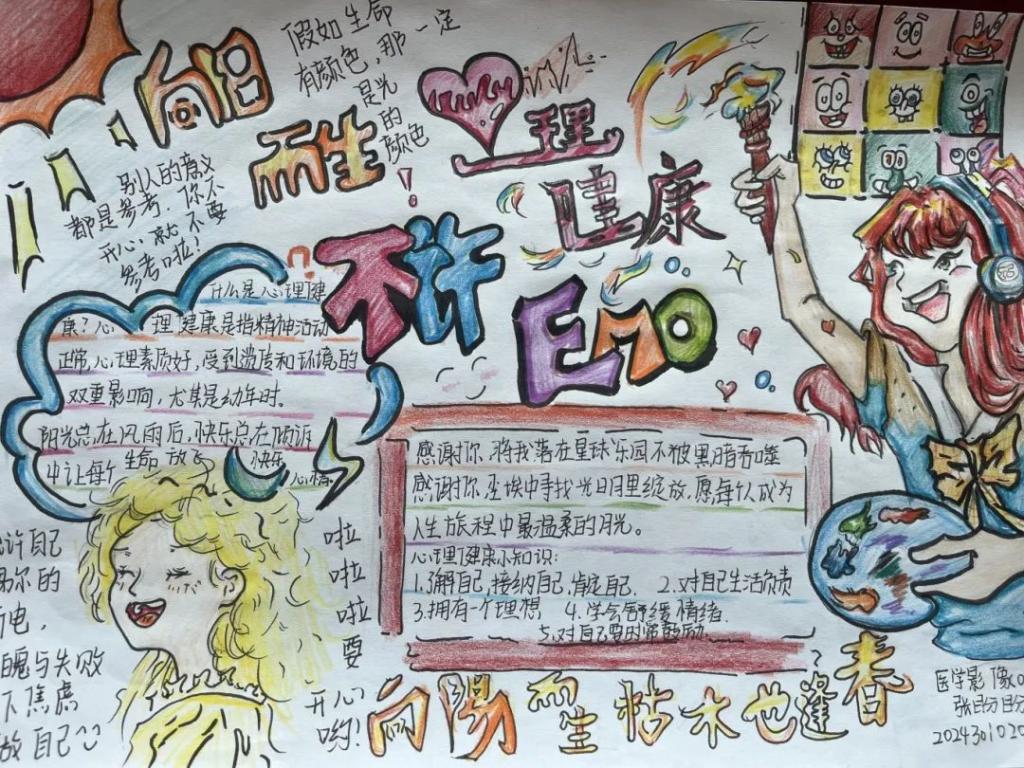 向阳
而生
假如生命
有颜色,那一定
是光
的
颜色
!
心理
健康
别人的意义
都是参考.你不
开心,就不要
参考啦!
不许
EMO
什么是心理健
康?心理健康是指精神活动
正常,心理素质好,受到遗传和环境的
双重影响,尤其是幼年时。
阳光总在风雨后,快乐总在倾诉
中让每个生命放飞快乐
心情
感谢你,将我落在星球乐园不被黑暗吞噬
感谢你,尘埃中寻找光明月里绽放,愿每个人成为
人生旅程中最温柔的月光。
心理健康小知识:
1.了解自己,接纳自己,肯定自己. 2.对自己生活负责
3.拥有一个理想 4.学会舒缓情绪.
5.对自己要时常鼓励.
许自己
你的
电,
与失败
下焦虑
做自己
啦
啦
啦
要
开心
哟!
向陽而生枯木也逢春
医学影像
2024301020